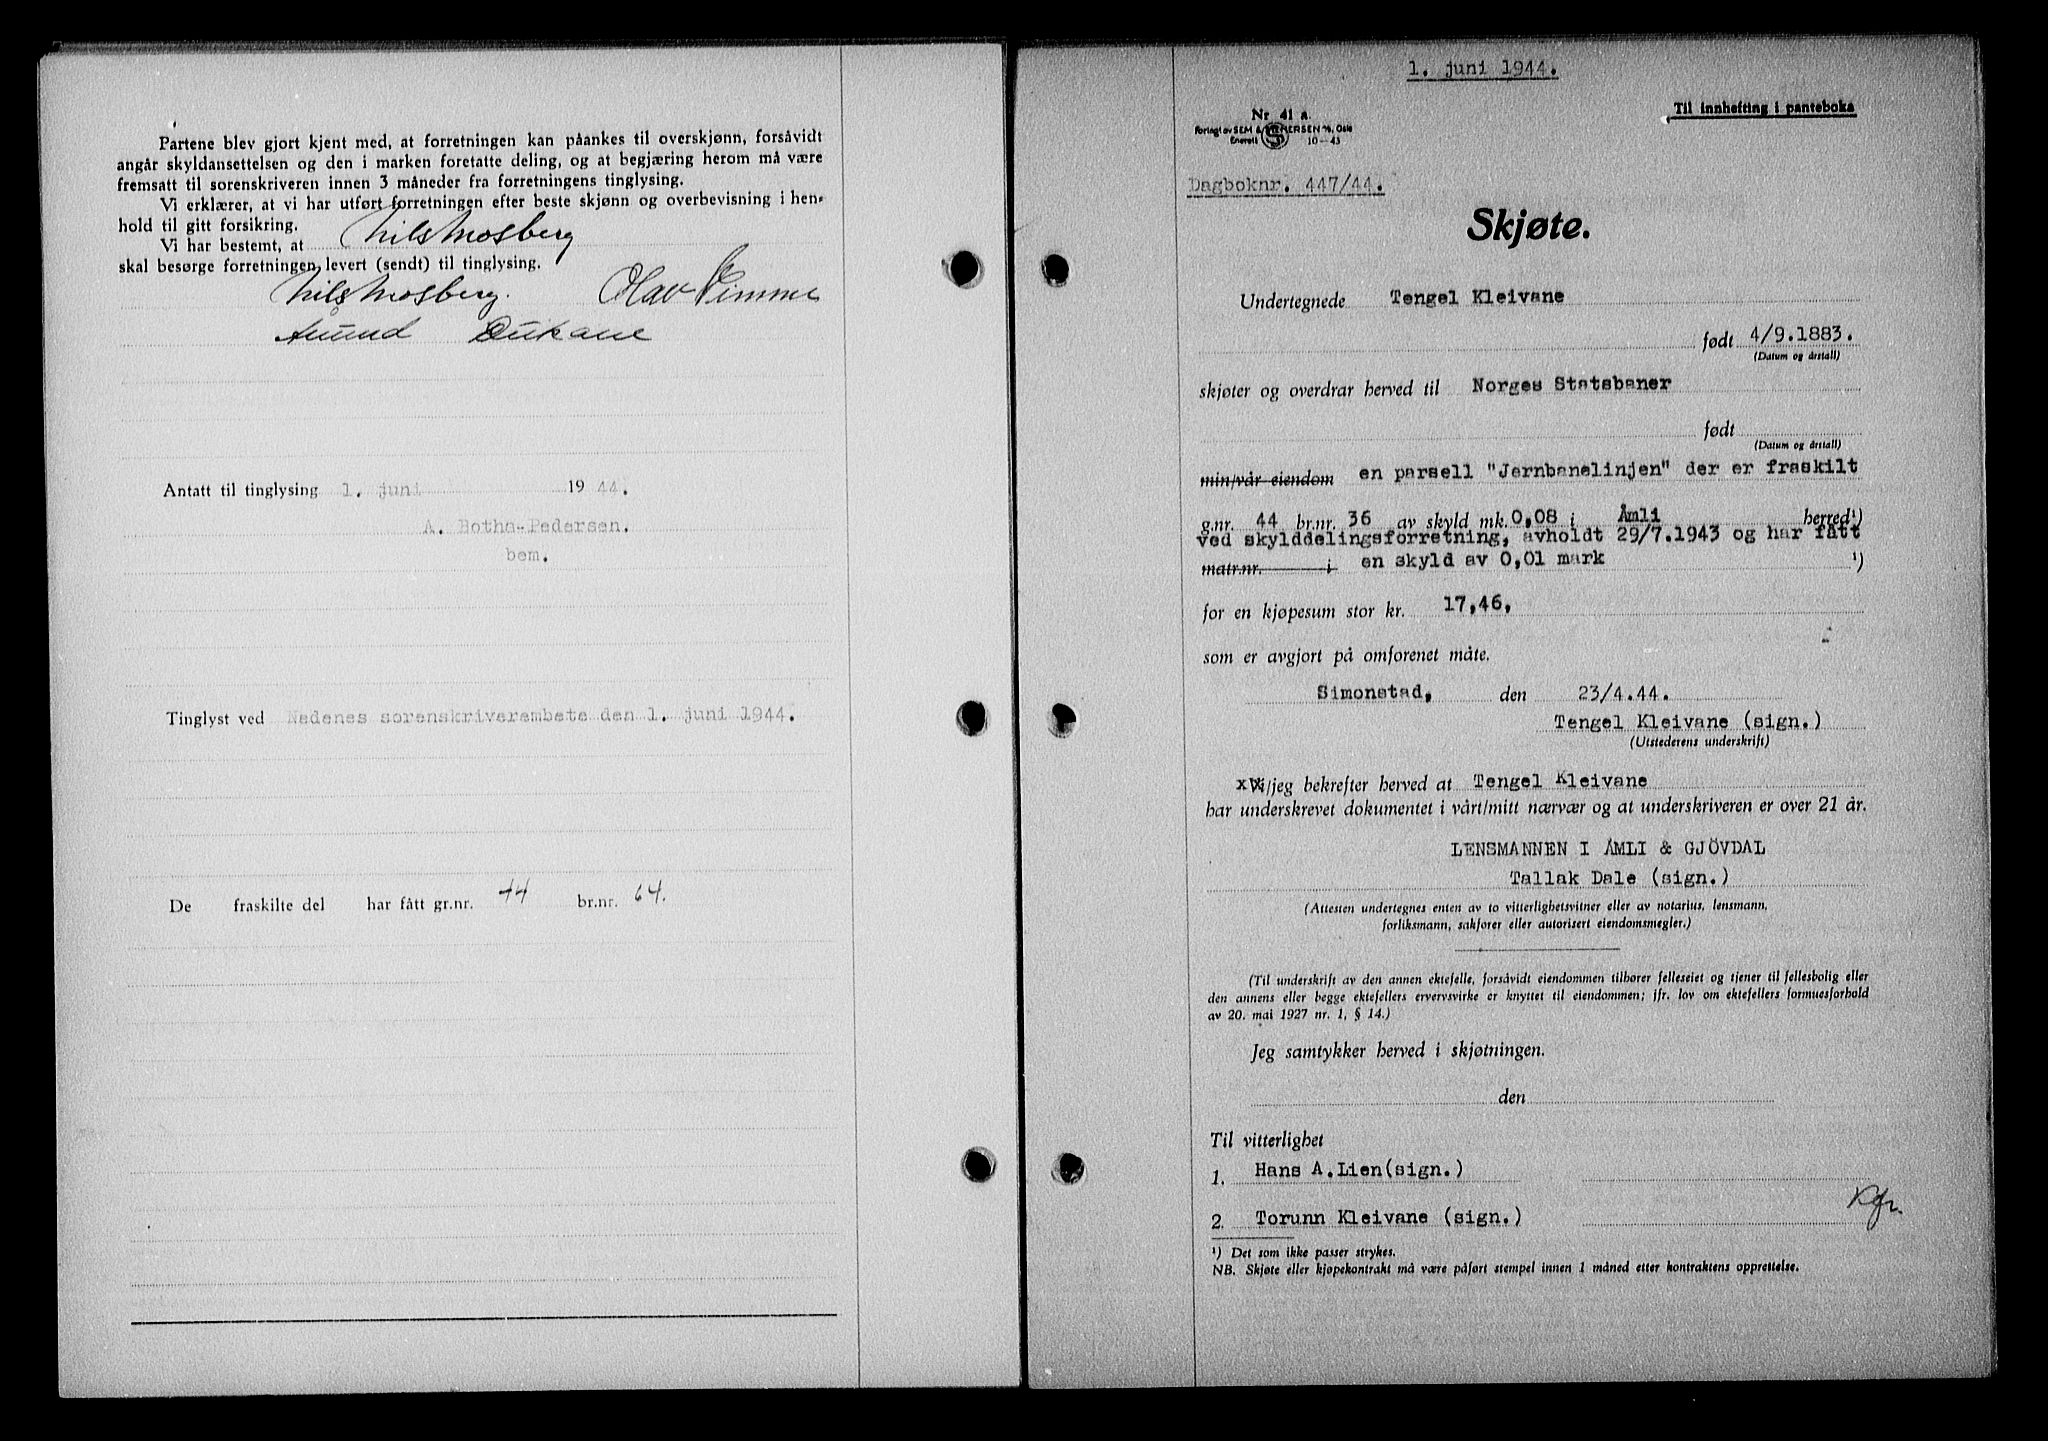 Partene blev gjort kjent med, at forretningen kan påankes til overskjønn, forsåvidt
angår skyldansettelsen og den i marken foretatte deling, og at begjæring herom må være
fremsatt til sorenskriveren innen 3 måneder fra forretningens tinglysing.
Vi erklærer, at vi har utført forretningen efter beste skjønn og overbevisning i hen-
hold til gitt forsikring.
Vi har bestemt, at Nils Mosberg
skal besørge forretningen levert (sendt) til tinglysing.
Nils Mosberg. Olav Vimme
Åmund
Antatt til tinglysing 1. juni 1944.
A. Botha-Pedersen.
bem.
Tinglyst ved Nedenes sorenskriverembete den 1. juni 1944.
De fraskilte del har fått gr.nr. 44 br.nr. 64.
1. juni 1944.
Til innhefting i panteboka
Nr 41 a.
Forlagt av SEM & STENERSEN A/S, Oslo
Enerett S 10—43
Dagboknr. 447/44.
Skjøte.
Undertegnede Tengel Kleivane
født 4/9.1883.
(Datum og årstall)
skjøter og overdrar herved til Norges Statsbaner
født
(Datum og årstall)
min/vår eiendom en parsell "Jernbanelinjen" der er fraskilt
g.nr. 44 br.nr. 36 av skyld mk. 0,08 i Åmli herred¹)
ved skylddelingsforretning, avholdt 29/7.1943 og har fått
matr.nr. i en skyld av 0,01 mark ¹)
for en kjøpesum stor kr. 17,46,
som er avgjort på omforenet måte.
Simonstad, den 23/4.44.
Tengel Kleivane (sign.)
(Utstederens underskrift)
xVi/jeg bekrefter herved at Tengel Kleivane
har underskrevet dokumentet i vårt/mitt nærvær og at underskriveren er over 21 år.
LENSMANNEN I ÅMLI & GJÖVDAL
Tallak Dale (sign.)
(Attesten undertegnes enten av to vitterlighetsvitner eller av notarius, lensmann,
forliksmann, sakfører eller autorisert eiendomsmegler.)
(Til underskrift av den annen ektefelle, forsåvidt eiendommen tilhører felleseiet og tjener til fellesbolig eller
den annens eller begge ektefellers ervervsvirke er knyttet til eiendommen; jfr. lov om ektefellers formuesforhold
av 20. mai 1927 nr. 1, § 14.)
Jeg samtykker herved i skjøtningen.
den
Til vitterlighet
1. Hans A. Lien (sign.)
2. Torunn Kleivane (sign.)
Kfr.
¹) Det som ikke passer strykes.
NB. Skjøte eller kjøpekontrakt må være påført stempel innen 1 måned etter kontraktens opprettelse.